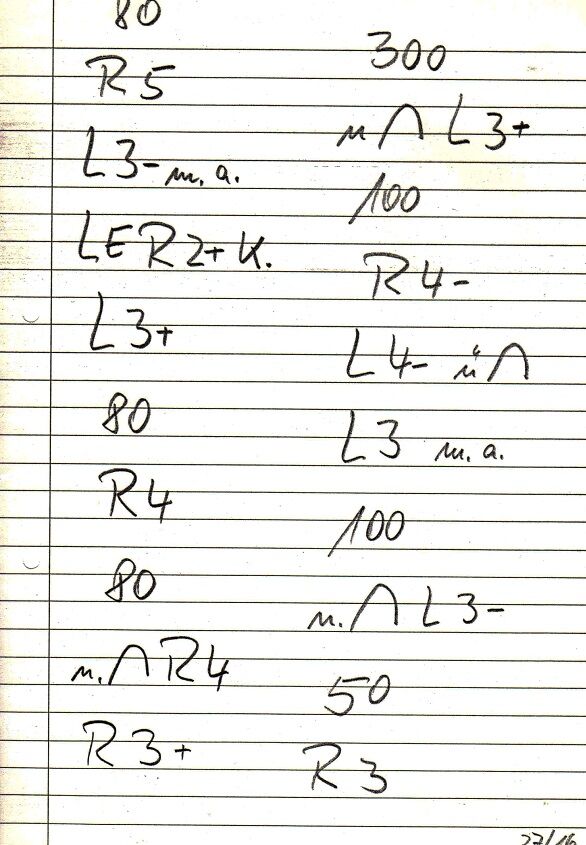 80
R5
L3- m. a.
LER2+ K.
L3+
80
R4
80
n. ∩ R4
R3+
300
n ∩ L3+
100
R4-
L4- ü ∩
L3 m. a.
100
n. ∩ L3-
50
R3